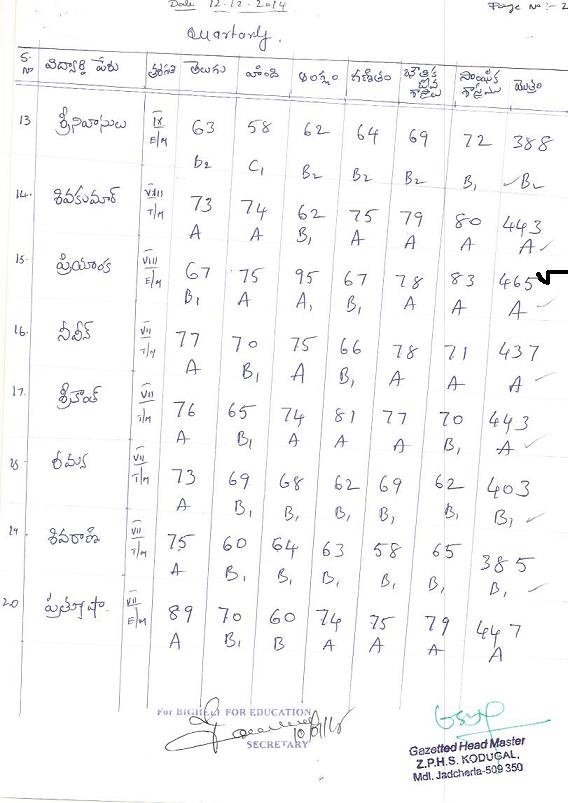 Date 12-12-2014 Page No:- 2
Quarterly.
S.No విద్యార్థి పేరు తరగతి తెలుగు హింది ఆంగ్లం గణితం భౌతిక శాస్త్రం సాంఘిక శాస్త్రము మొత్తం
13 శ్రీనివాసులు IX E/M 63 58 62 64 69 72 388
b2 C1 B2 B2 B2 B1 B2
14. శివకుమార్ VIII T/M 73 74 62 75 79 80 443
A A B1 A A A A
15. ప్రియాంక VIII E/M 67 75 95 67 78 83 465
B1 A A1 B1 A A A
16. నవీన్ VII T/M 77 70 75 66 78 71 437
A B1 A B1 A A A
17. శ్రీకాంత్ VII T/M 76 65 74 81 77 70 443
A B1 A A A B1 A
18 VII T/M 73 69 68 62 69 62 403
A B1 B1 B1 B1 B1 B1
19 శివరాణి VII T/M 75 60 64 63 58 65 385
A B1 B1 B1 B1 B1 B1
20 ప్రత్యూషా. VII E/M 89 70 60 74 75 79 447
A B1 B A A A A
For BIGHELP FOR EDUCATION
10/01/15
SECRETARY
Gazetted Head Master
Z.P.H.S. KODUGAL,
Mdl. Jadcherla-509 350